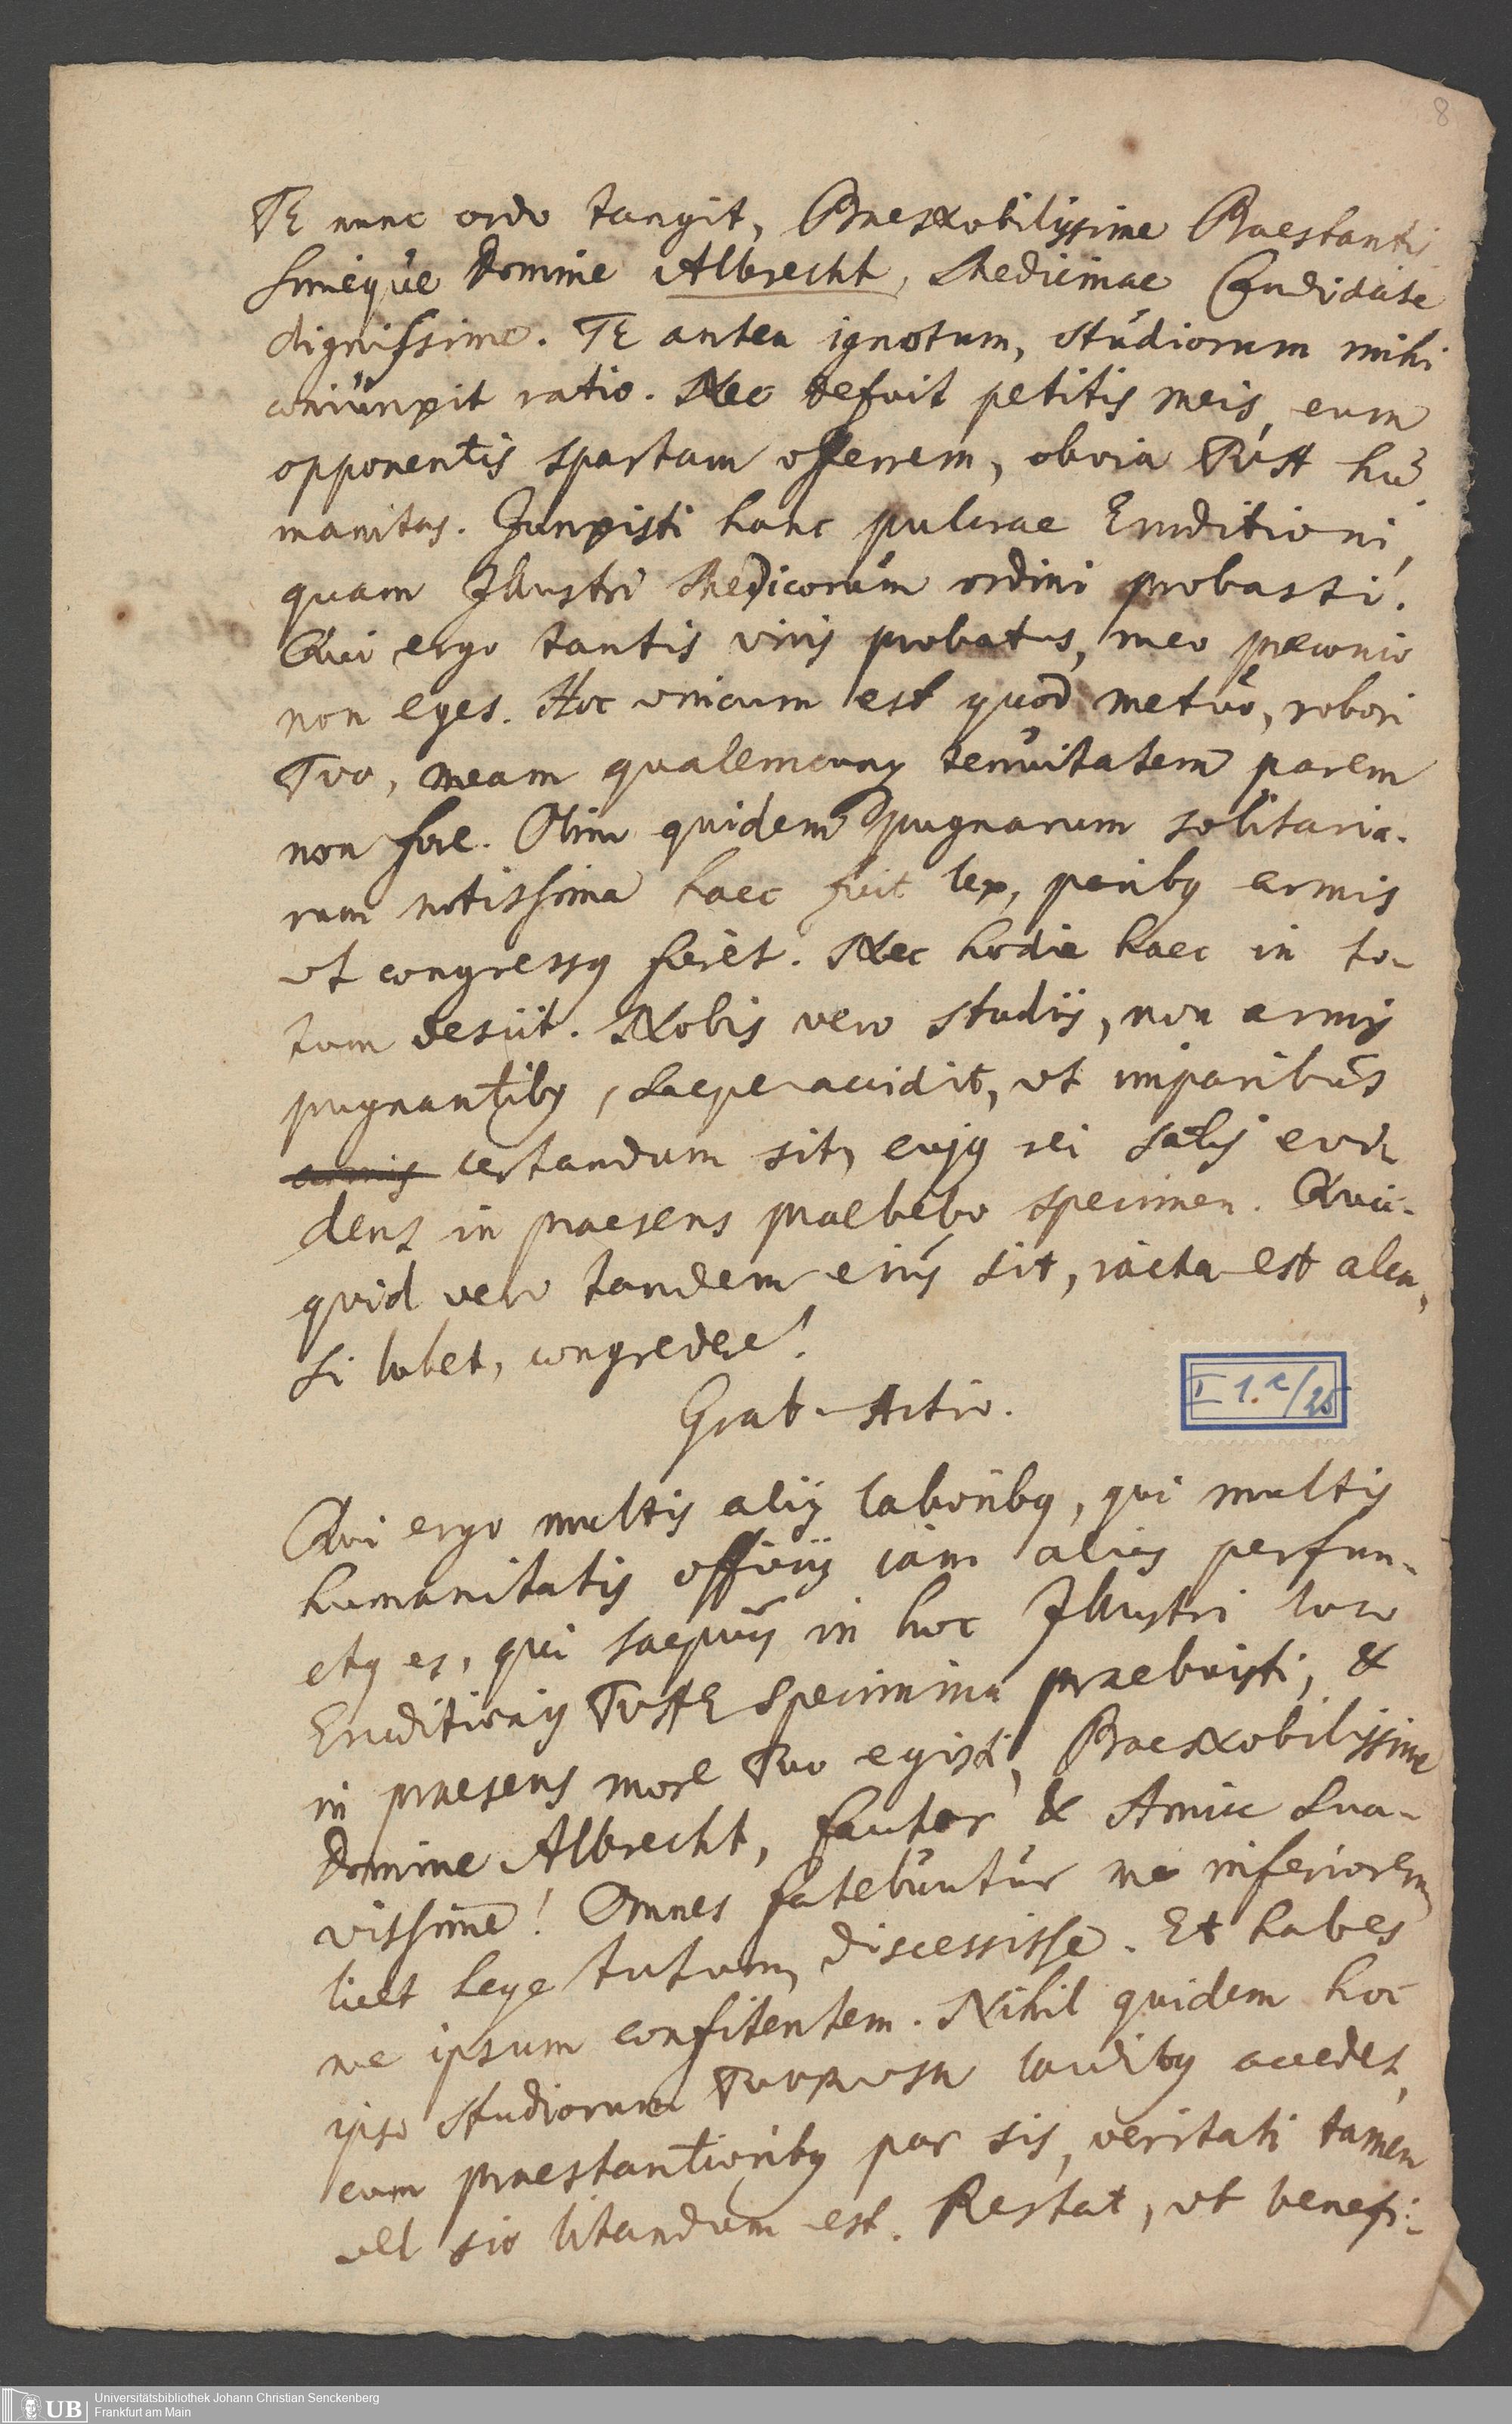 8
TE nunc ordo tangit, PraesNobilissime Praestantis
simeque Domine Albrecht, Medicinae Candidate
dignissime. TE antea ignotum, studiorum mihi
coniunxit ratio. Nec defuit petitis meis, cum
opponentis spartam offerrem, obvia TUA hu-
manitas. Junxisti hanc pulcrae Eruditioni,
quam Illustri Medicorum ordini probasti.
Qui ergo tantis viris probatus, meo praeconio
non eges. Hoc vnicum est quod metuo, robori
Tuo, meam qualemcunq tenuitatem parem
non fore. Olim quidem pugnarum solitaria-
rum notissima haec fuit lex, paribq armis
vt congressq fieret. Nec hodie haec in to-
tum desiit. Nobis vero studiis, non armis
pugnantibq, saepe accidit, vt imparibus
armis certandum sit, cujq rei satis evi-
dens in praesens praebebo specimen. Quic-
quid vero tandem eius sit, iacta est alea,
si lubet, congredere!
Grat. Actio.
I 1. c/25
Qui ergo multis aliis laboribq, qui multis
humanitatis officiis iam alias perfun-
ctq es, qui saepius in hoc Illustri loco
Eruditionis TUAE specimina praebuisti, &
in praesens more Tuo egisti, PraesNobilissime
Domine Albrecht, fautor & Amice Sua-
vissime! Omnes fatebuntur me inferiorem
licet lege tutum, discessisse. Et habes
me ipsum confitentem. Nihil quidem hoc
ipso studiorum TUORUM laudibq accedet,
cum praestantioribq par sis, veritati tamen
vel sic litandum est. Restat, vt benefi-
UB Universitätsbibliothek Johann Christian Senckenberg
Frankfurt am Main